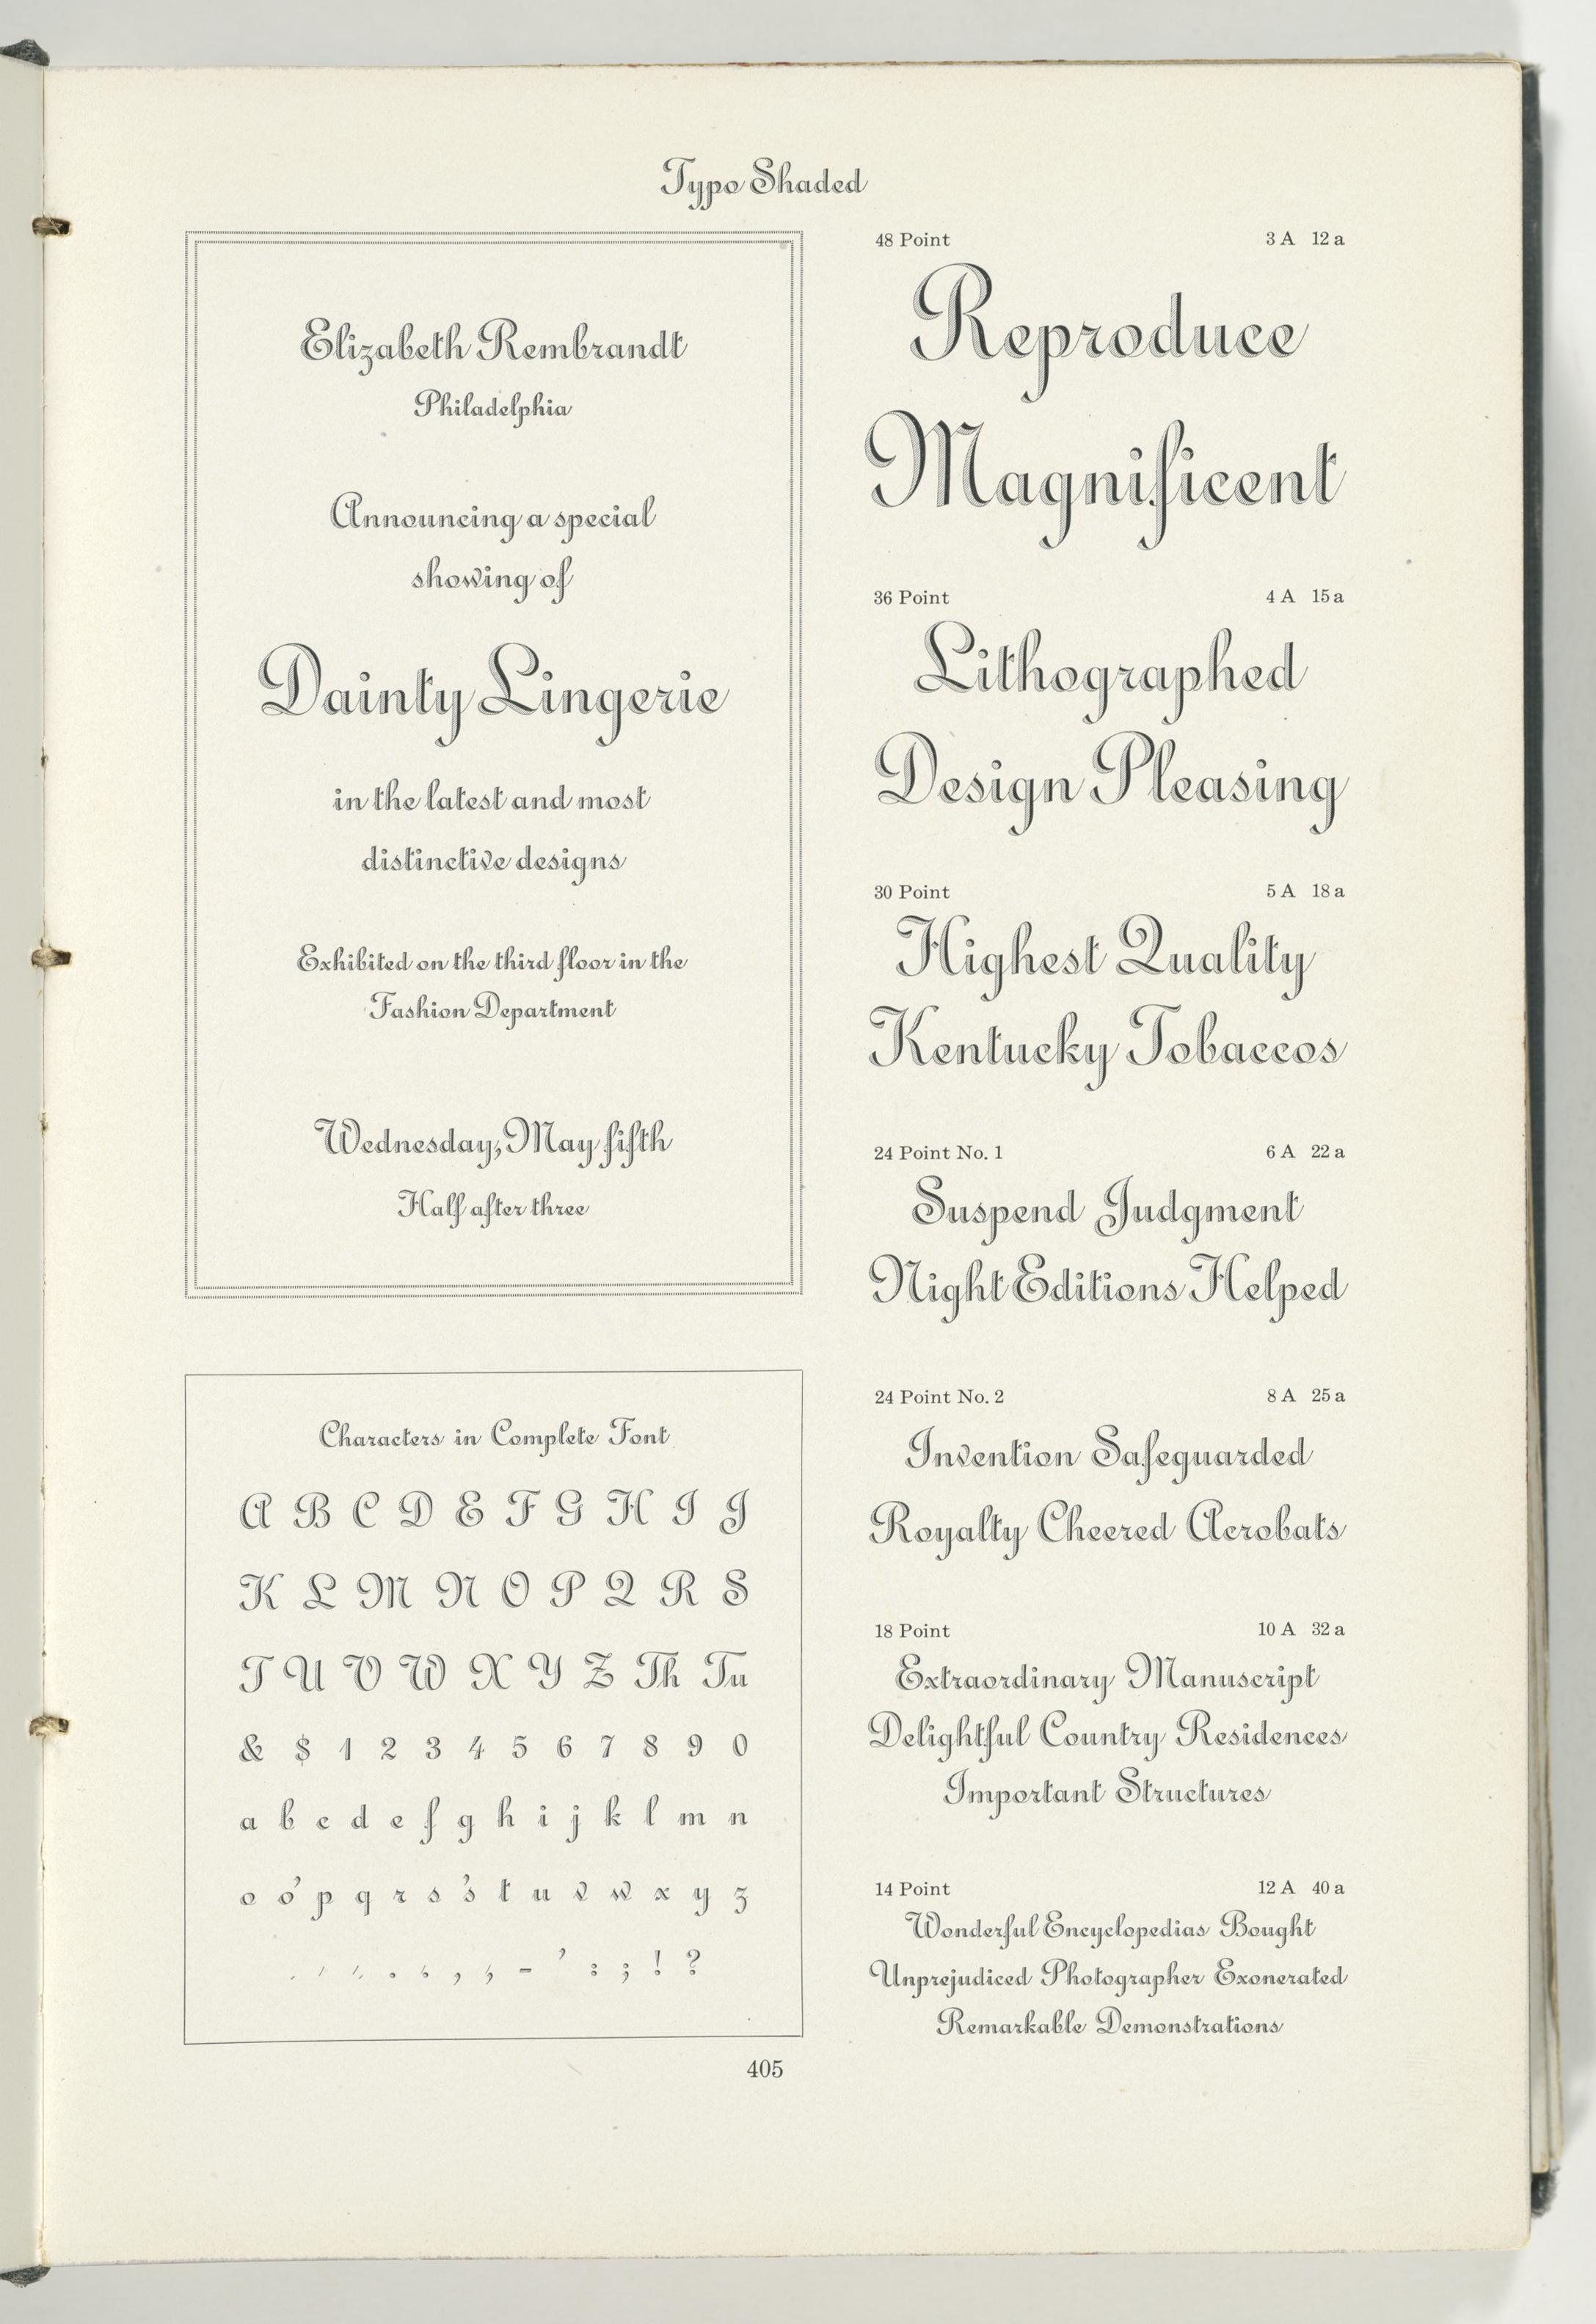 Typo Shaded
Elizabeth Rembrandt
Philadelphia
Announcing a special
showing of
Dainty Lingerie
in the latest and most
distinctive designs
Exhibited on the third floor in the
Fashion Department
Wednesday, May fifth
Half after three
Characters in Complete Font
A B C D E F G H I J
K L M N O P Q R S
T U V W X Y Z Th Tu
& $ 1 2 3 4 5 6 7 8 9 0
a b c d e f g h i j k l m n
o o' p q r s 's t u v w x y z
. , - ' : ; ! ?
48 Point 3 A 12 a
Reproduce
Magnificent
36 Point 4 A 15 a
Lithographed
Design Pleasing
30 Point 5 A 18 a
Highest Quality
Kentucky Tobaccos
24 Point No. 1 6 A 22 a
Suspend Judgment
Night Editions Helped
24 Point No. 2 8 A 25 a
Invention Safeguarded
Royalty Cheered Acrobats
18 Point 10 A 32 a
Extraordinary Manuscript
Delightful Country Residences
Important Structures
14 Point 12 A 40 a
Wonderful Encyclopedias Bought
Unprejudiced Photographer Exonerated
Remarkable Demonstrations
405